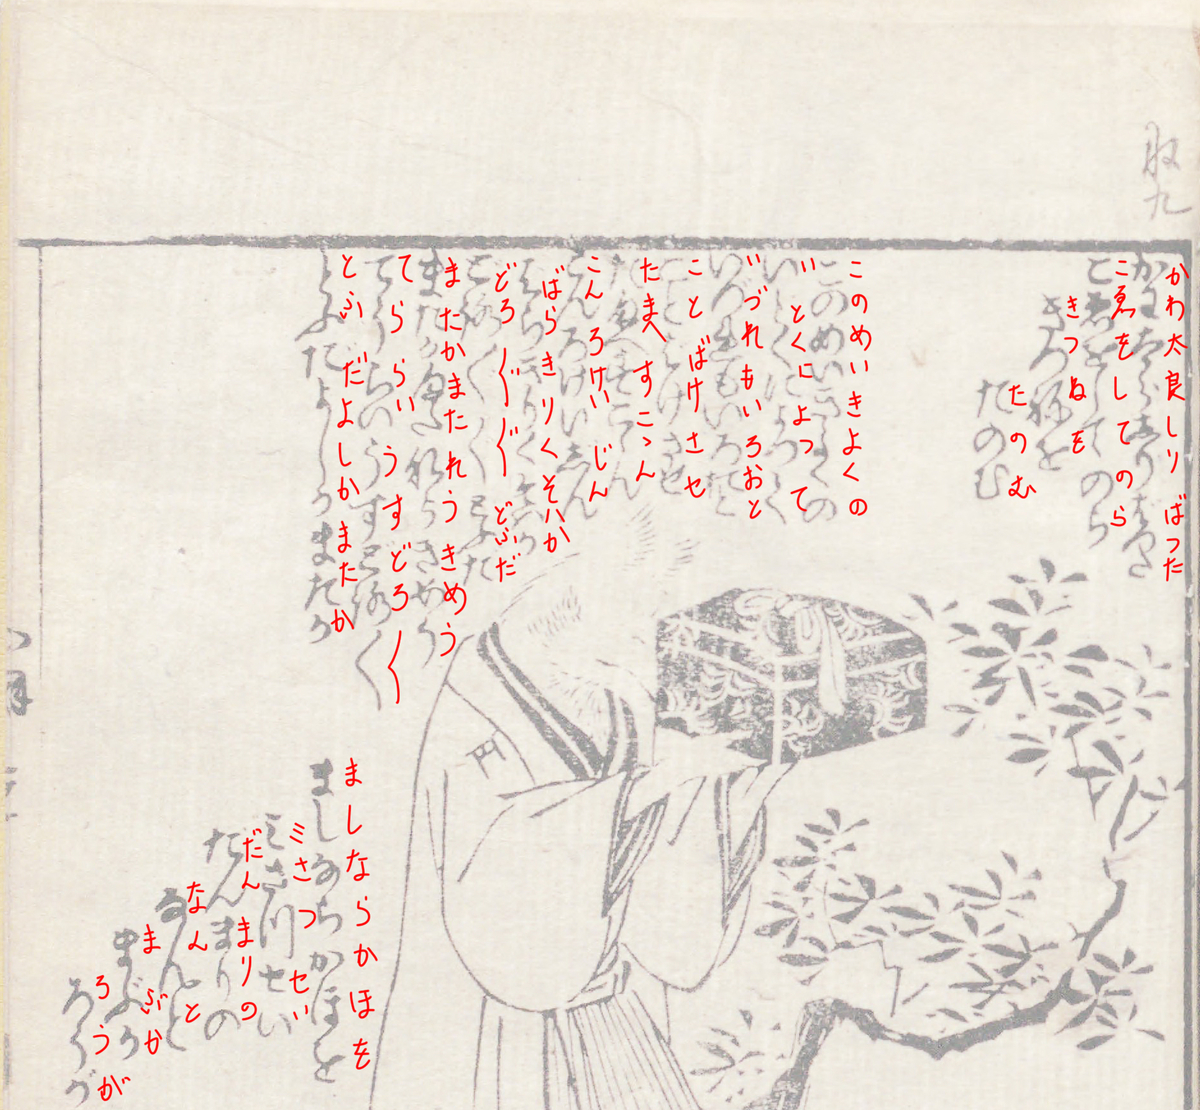 かわ太良しりばつた
こゑをしてのら
きつねを
たのむ
このめいきよくの
いとくによつて
いづれもいろおと
ことばけさセ
たまへすこゝん
こんろけいじん
ばらきりくそハか
どろ〳〵〴〵〴〵どぶだ
またかまたれうきめう
てららいうすどろ〳〵
とふだよしかまたか
ましならかほを
ミさつセい
だんまりの
なんと
まぶか
ろうが